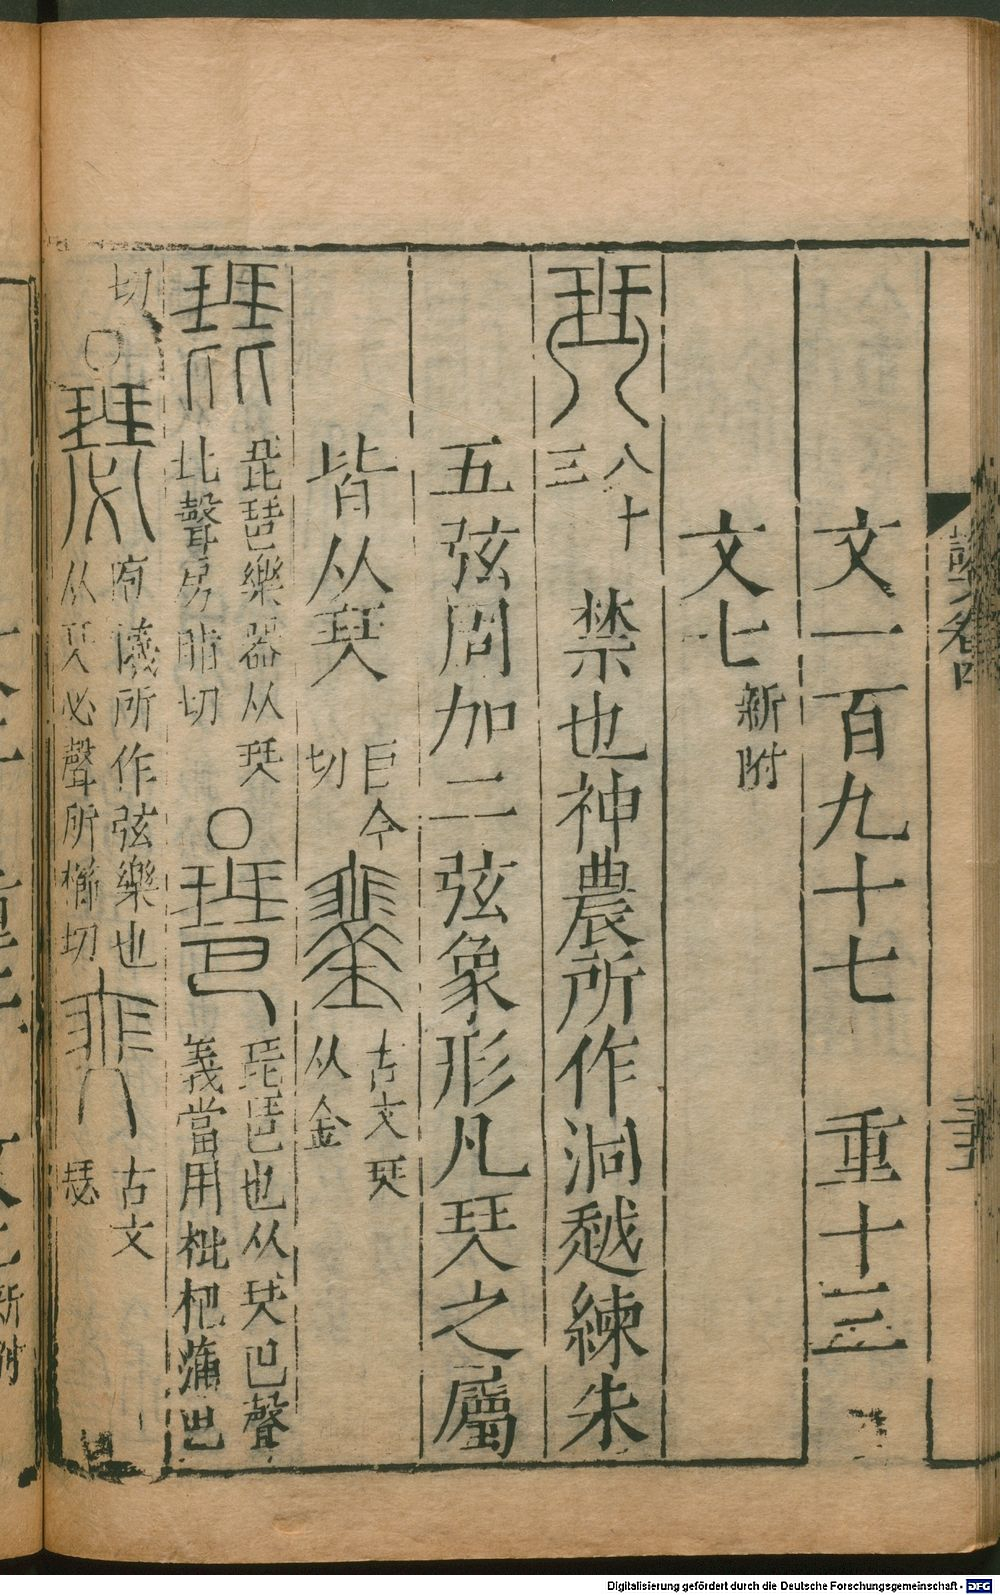 文一百九十七　重十三
文七新附
八十三　禁也神農所作洞越練朱
五弦周加二弦象形凡珡之屬
皆从珡巨今切　古文珡从金
琵琶樂器从珡比聲房脂切〇　琵琶也从珡巴聲義當用枇杷蒲巴
切〇　庖犧所作弦樂也从珡必聲所櫛切　古文瑟
Digitalisierung gefördert durch die Deutsche Forschungsgemeinschaft - DFG